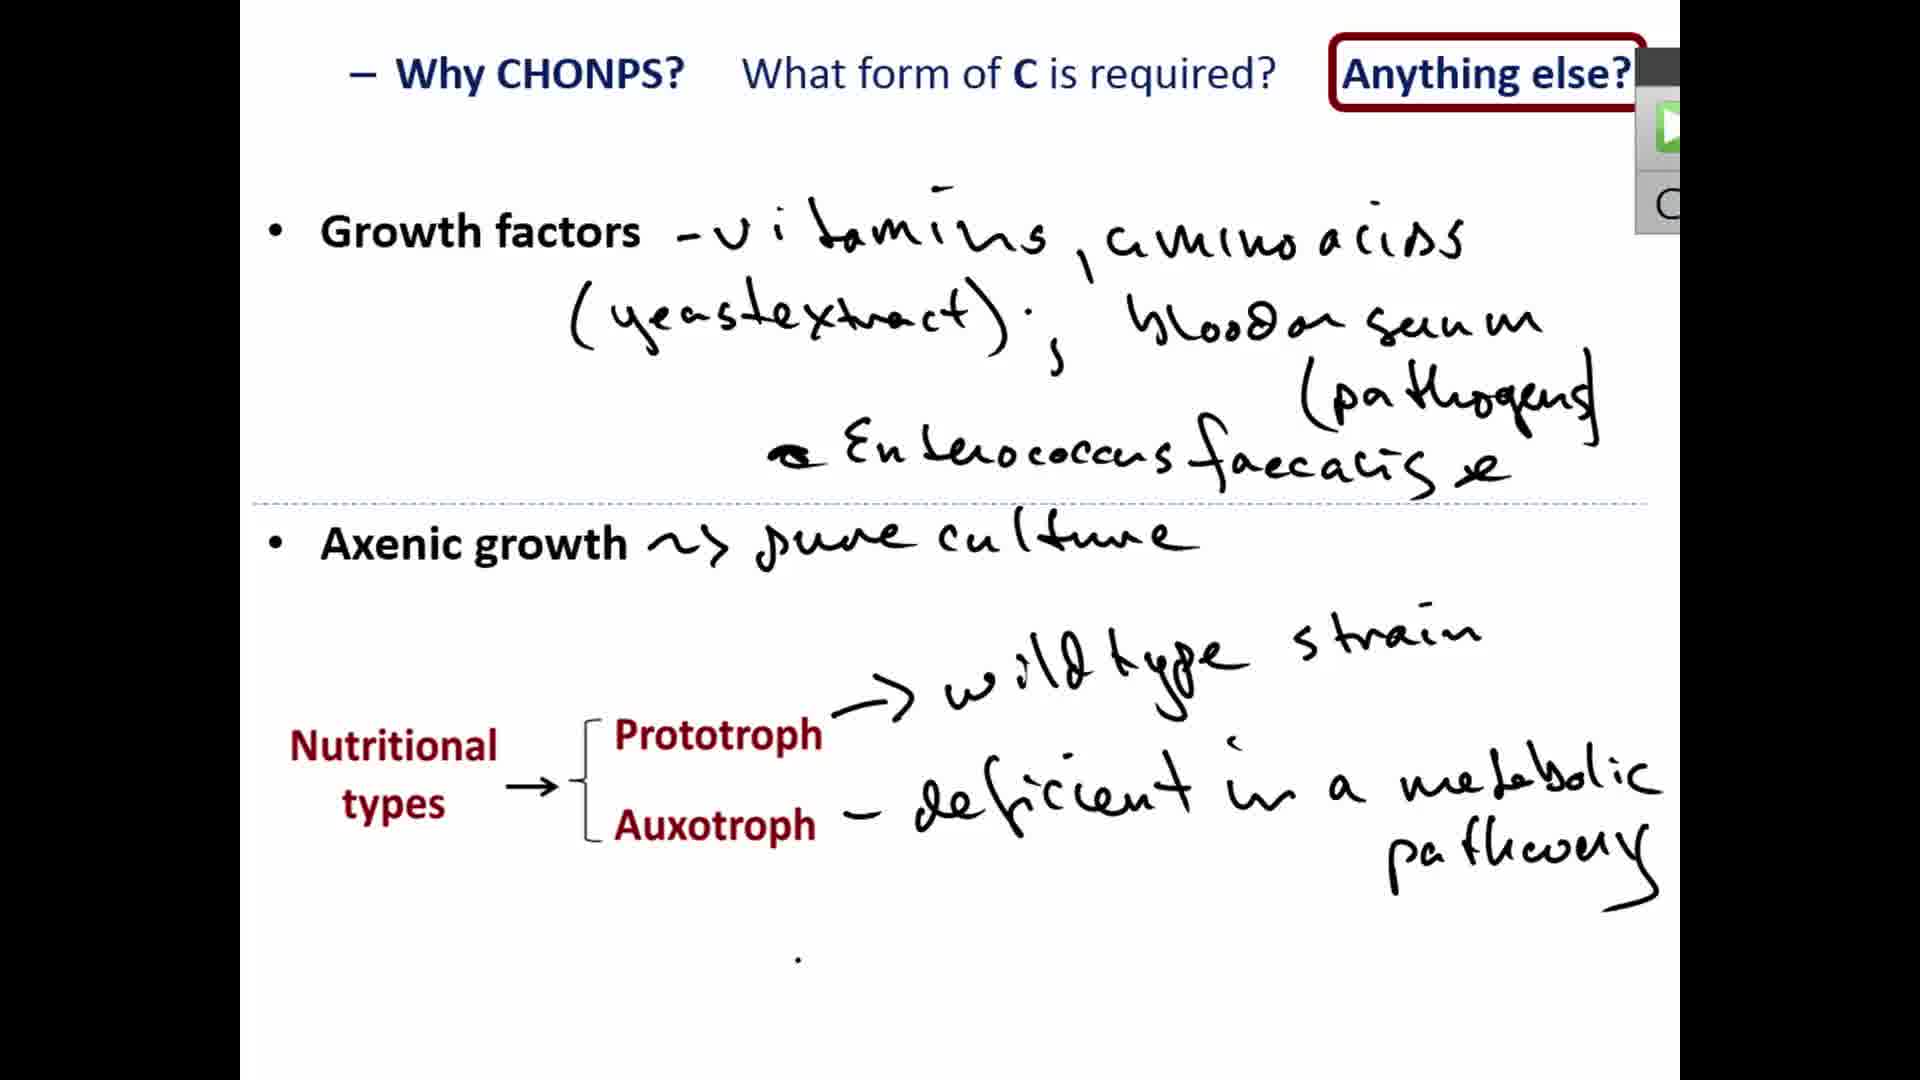 – Why CHONPS? What form of C is required? Anything else?
• Growth factors - vitamins, aminoacids
(yeast extract); blood or serum
(pathogens)
Enterococcus faecalis
• Axenic growth ~> pure culture
→ wild type strain
Nutritional types → Prototroph
Auxotroph – deficient in a metabolic
pathway